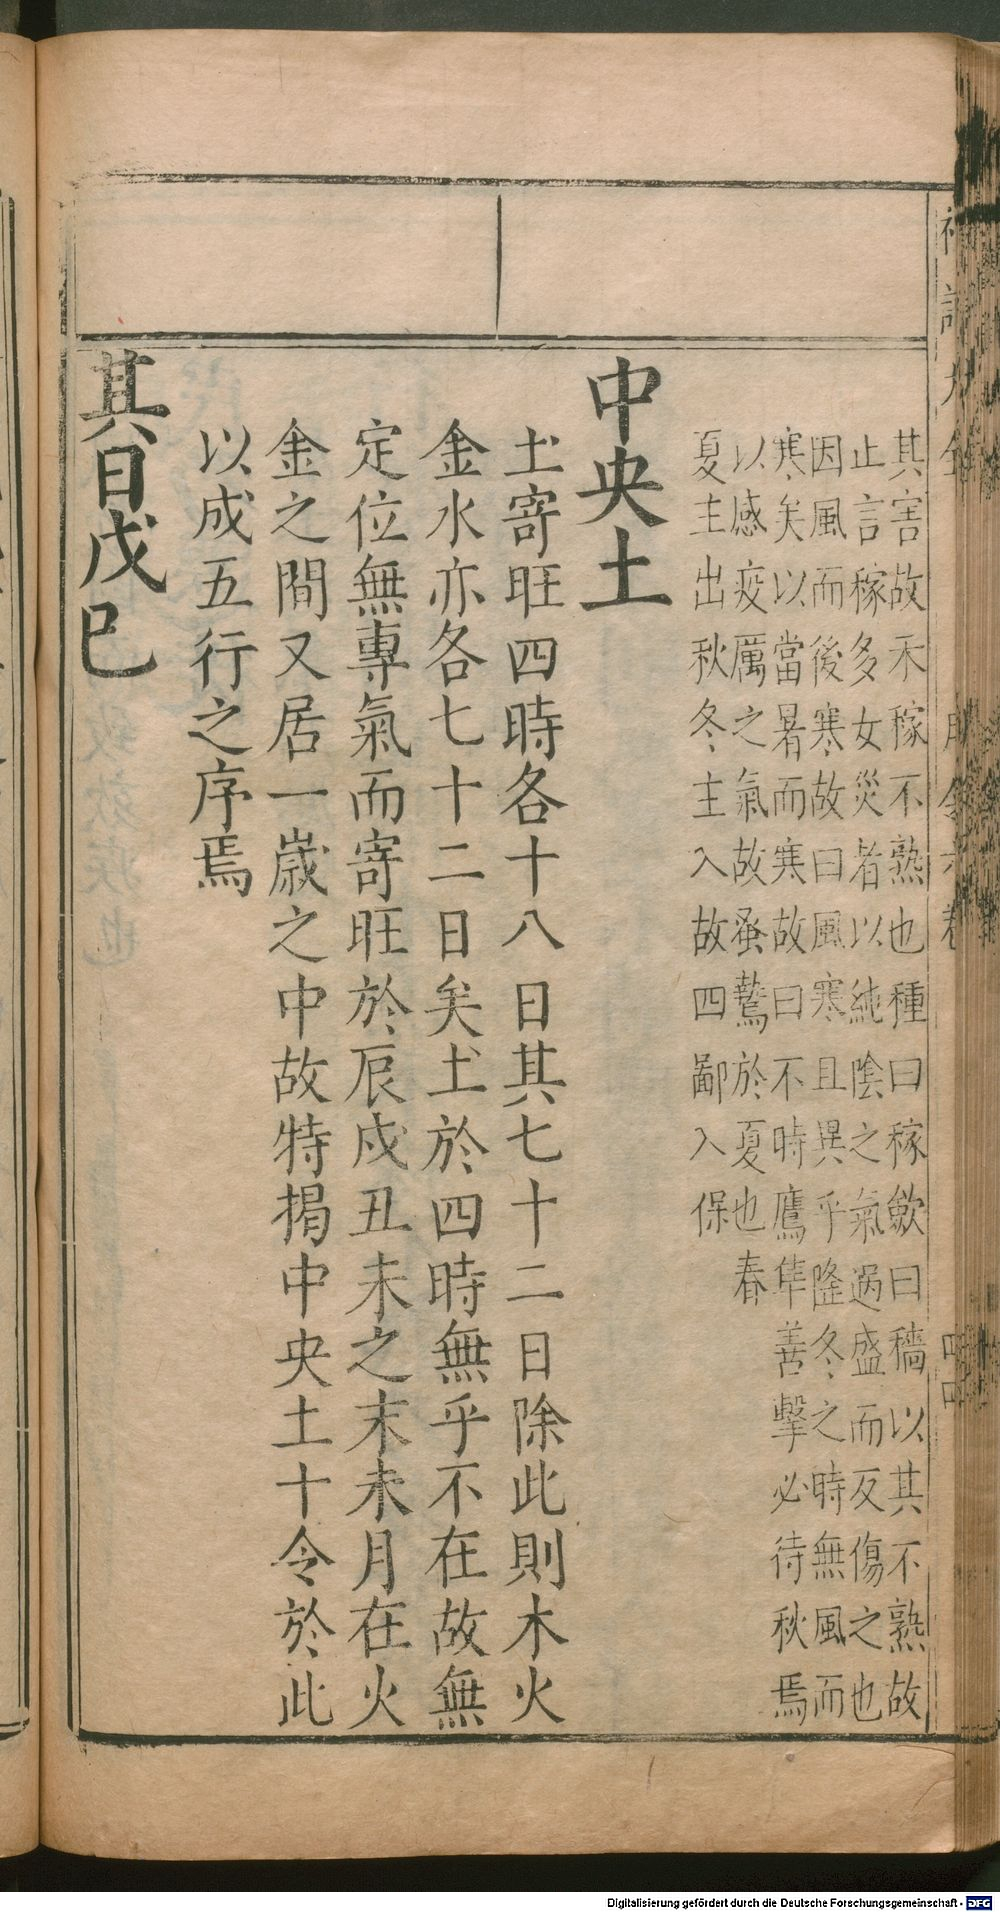 其害故禾稼不熟也種曰稼斂曰穡以其不熟故
止言稼多女災者以純陰之氣過盛而反傷之也
因風而後寒故曰風寒且異乎隆冬之時無風而
寒矣以當暑而寒故曰不時鷹隼善擊必待秋焉
以感疫厲之氣故蚤鷙於夏也春
夏主出秋冬主入故四鄙入保
中央土
土寄旺四時各十八日其七十二日除此則木火
金水亦各七十二日矣土於四時無乎不在故無
定位無專氣而寄旺於辰戌丑未之末未月在火
金之間又居一歲之中故特揭中央土十令於此
以成五行之序焉
其日戊巳
Digitalisierung gefördert durch die Deutsche Forschungsgemeinschaft - DFG